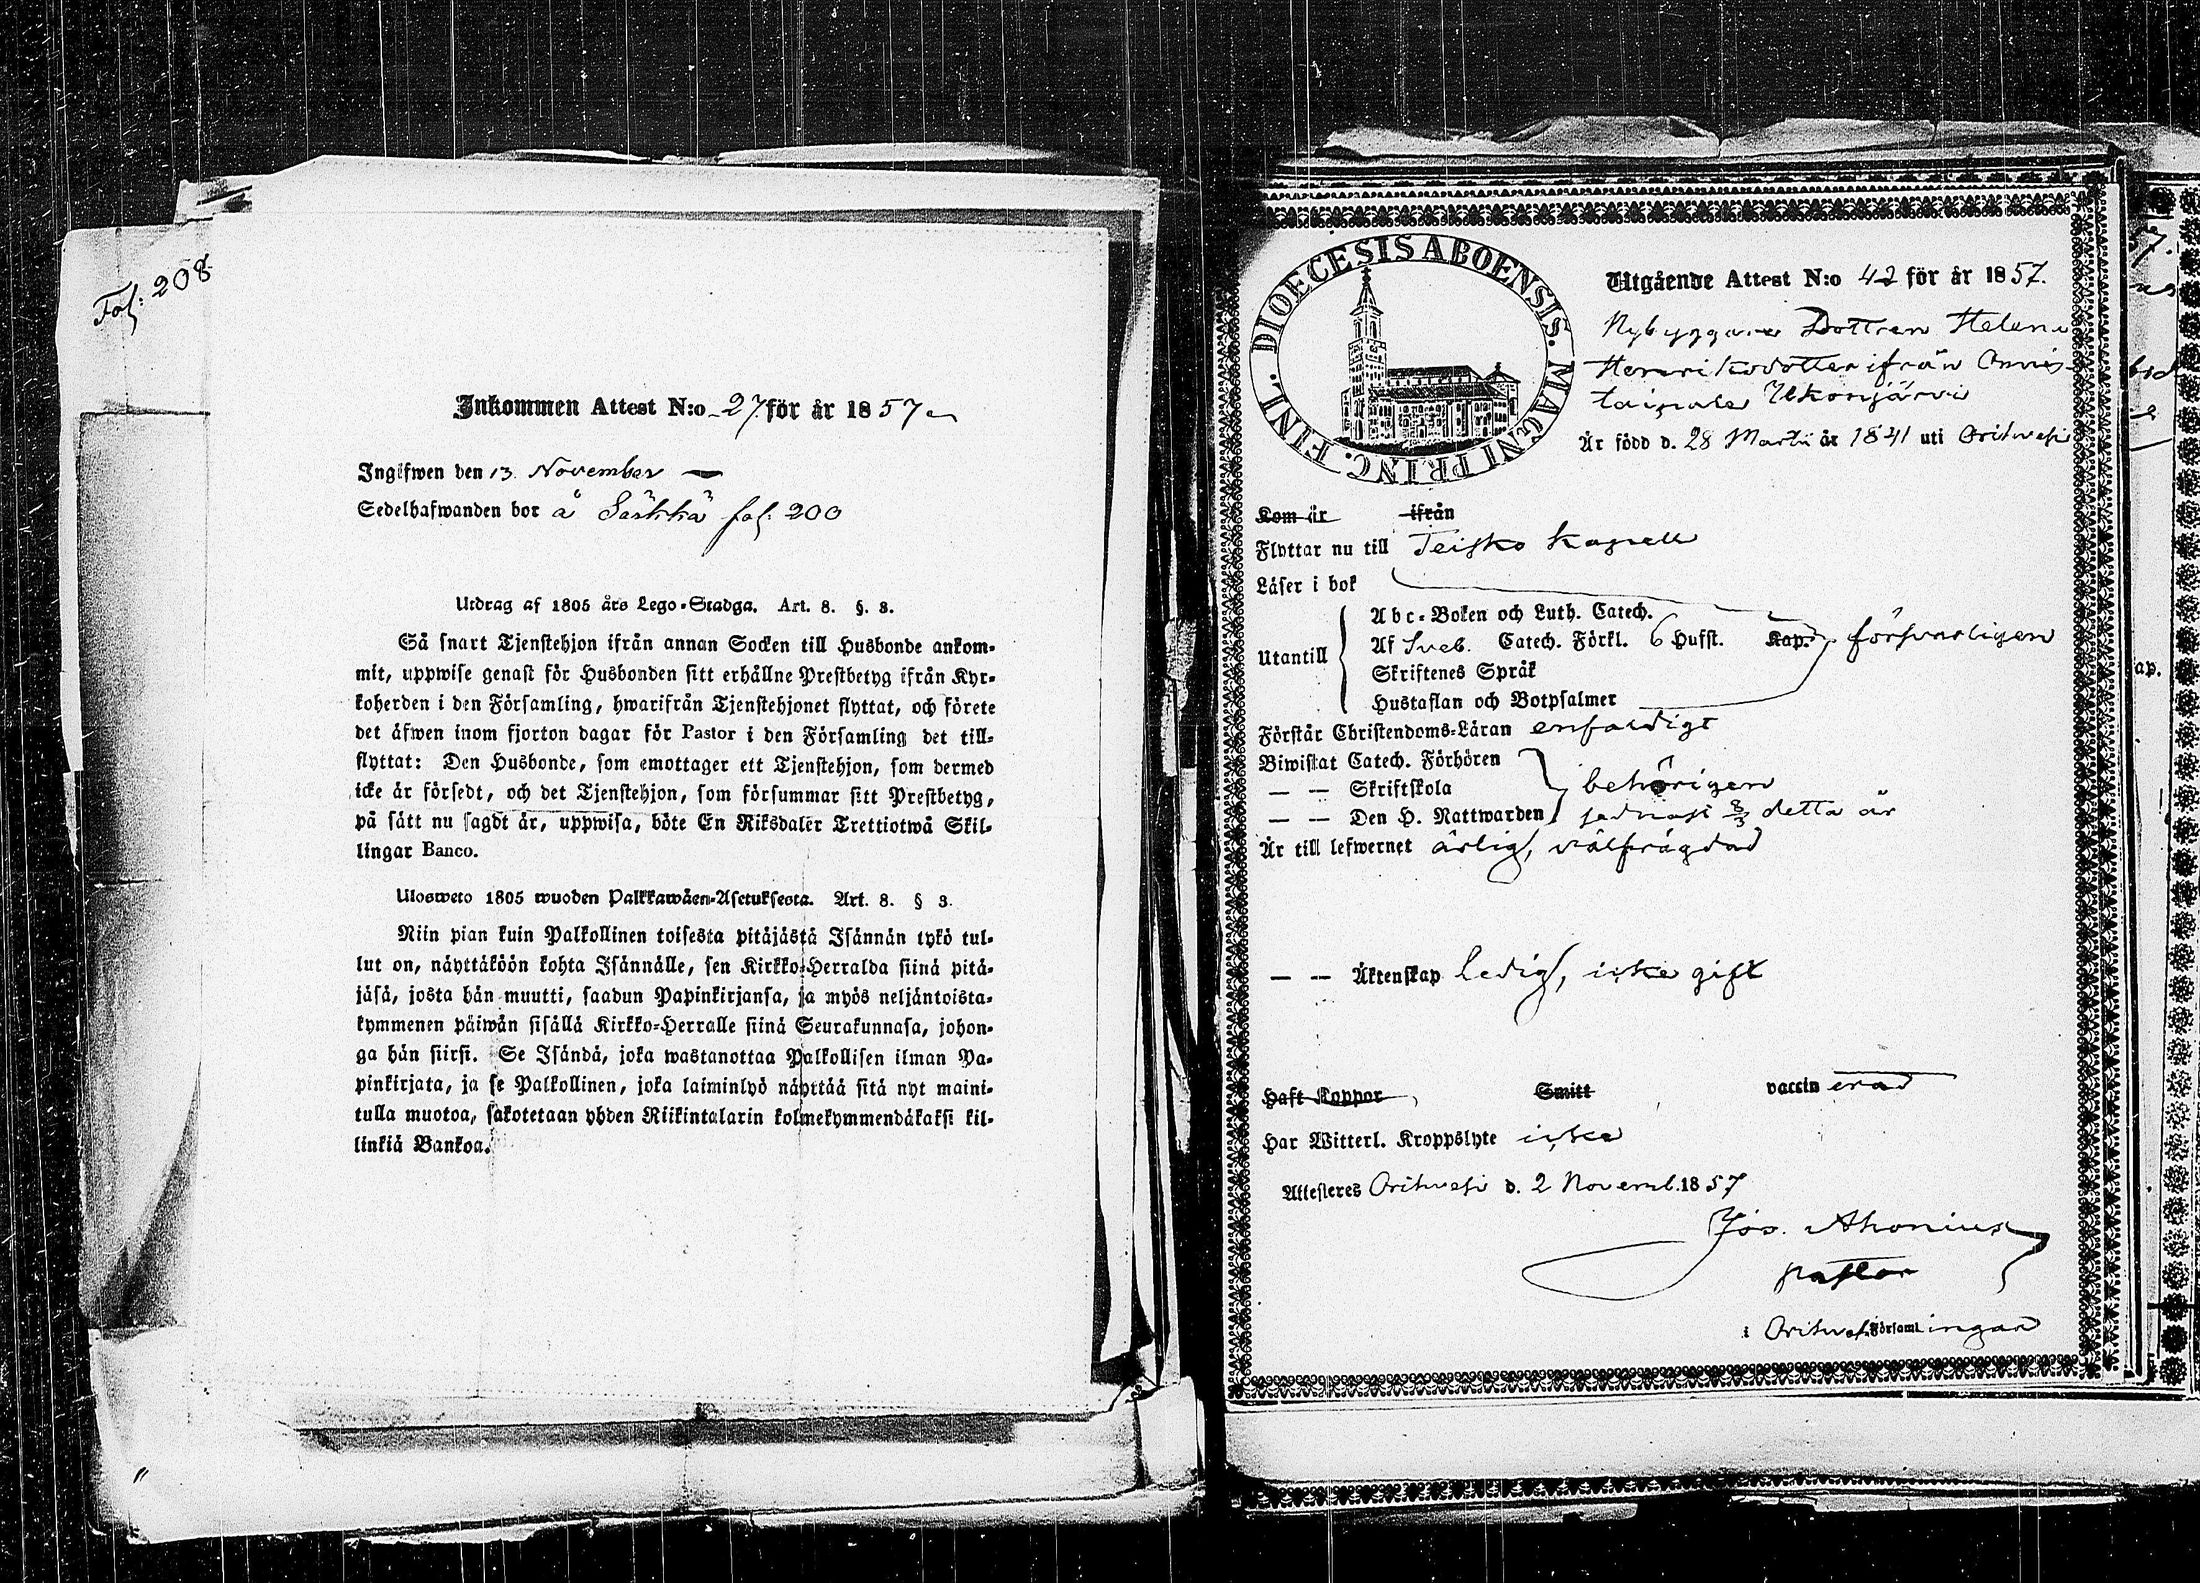 Fol: 208
Inkommen Attest N:o 27 för år 1857
Ingifwen den 13 November
Sedelhafwanden bor å Särkkä fol. 200
Utdrag af 1805 års Lego-Stadga. Art. 8. §. 3.
Så snart Tjenstehjon ifrån annan Socken till Husbonde ankom-
mit, uppwise genast för Husbonden sitt erhållne Prestbetyg ifrån Kyr-
koherden i den Församling, hwarifrån Tjenstehjonet flyttat, och förete
det äfwen inom fjorton dagar för Pastor i den Församling det till-
flyttat: Den Husbonde, som emottager ett Tjenstehjon, som dermed
icke är försedt, och det Tjenstehjon, som försummar sitt Prestbetyg,
på sätt nu sagdt är, uppwisa, böte En Riksdaler Trettiotwå Skil-
lingar Banco.
Ulosweto 1805 wuoden Palkkawäen-Asetuksesta. Art. 8. § 3.
Niin pian kuin Palkollinen toisesta pitäjästä Isännän tykö tul-
lut on, näyttäköön kohta Isännälle, sen Kirkko-Herralda siinä pitä-
jäsä, josta hän muutti, saadun Papinkirjansa, ja myös neljäntoista-
kymmenen päiwän sisällä Kirkko-Herralle siinä Seurakunnasa, johon-
ga hän siirsi. Se Isändä, joka wastanottaa Palkollisen ilman Pa-
pinkirjata, ja se Palkollinen, joka laiminlyö näyttää sitä nyt maini-
tulla muotoa, sakotetaan yhden Riikintalarin kolmekymmendäkaksi kil-
linkiä Bankoa.
DIOECESIS ABOENSIS. MAGNI PRINC. FINL.
Utgående Attest N:o 42 för år 1857.
Nybyggare Dottren Helena
Henriksdotter ifrån Onnis-
taipale Ukonjärvi
Är född d. 28 Martii år 1841 uti Orihvesi
Kom år ifrån
Flyttar nu till Teisko Kapell
Läser i bok
Abc-Boken och Luth. Catech.
Utantill Af Sveb. Catech. Förkl. 6 Hufst. Kap. försvarligen
Skriftenes Språk
Hustaflan och Botpsalmer
Förstår Christendoms-Läran enfaldigt
Biwistat Catech. Förhören
— — Skriftskola behörigen
— — Den H. Nattwarden sednast 8/3 detta år
Är till lefwernet ärlig, välfrägdad
— — Äktenskap Ledig, icke gift
Haft Koppor Smitt vaccinerad
Har Witterl. Kroppslyte icke
Attesteres Orihvesi d. 2 Novemb. 1857
Jos. Ahonius
pastor
i Orihvesi Församlingar